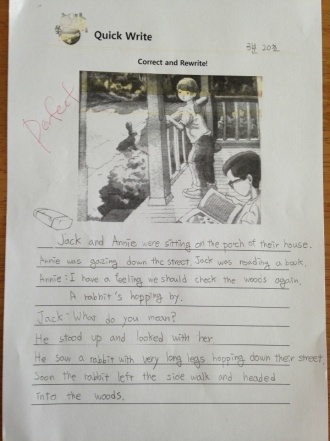 Quick Write
3번 20호
Correct and Rewrite!
Perfect
Jack and Annie were sitting on the porch of their house.
Annie was gazing down the street. Jack was reading a book.
Annie: I have a feeling we should check the woods again.
A rabbit's hopping by.
Jack: What do you mean?
He stood up and looked with her.
He saw a rabbit with very long legs hopping down their street
Soon the rabbit left the side walk and headed
into the woods.